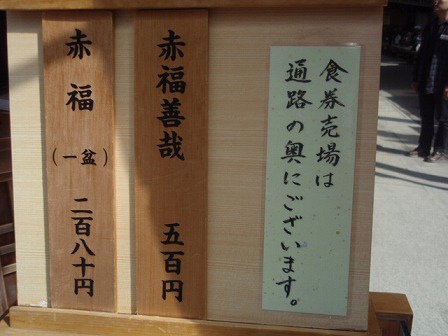 食券売場は
通路の奥にございます。
赤福善哉 五百円
赤福 (一盆) 二百八十円